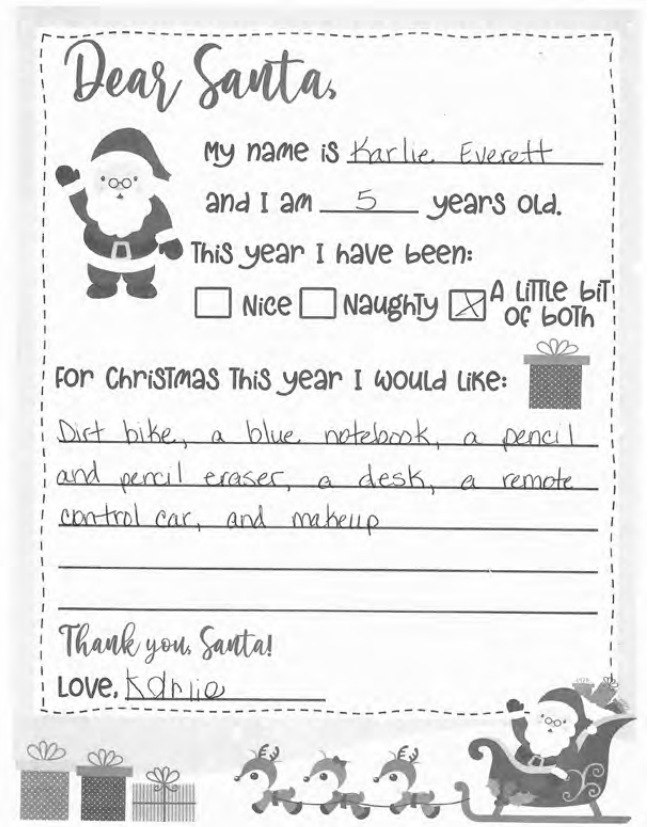 Dear Santa,
My name is Karlie Everett
and I am 5 years old.
This year I have been:
Nice Naughty A little bit of both
For Christmas this year I would like:
Dirt bike, a blue notebook, a pencil
and pencil eraser, a desk, a remote
control car, and makeup
Thank you, Santa!
Love, Karlie